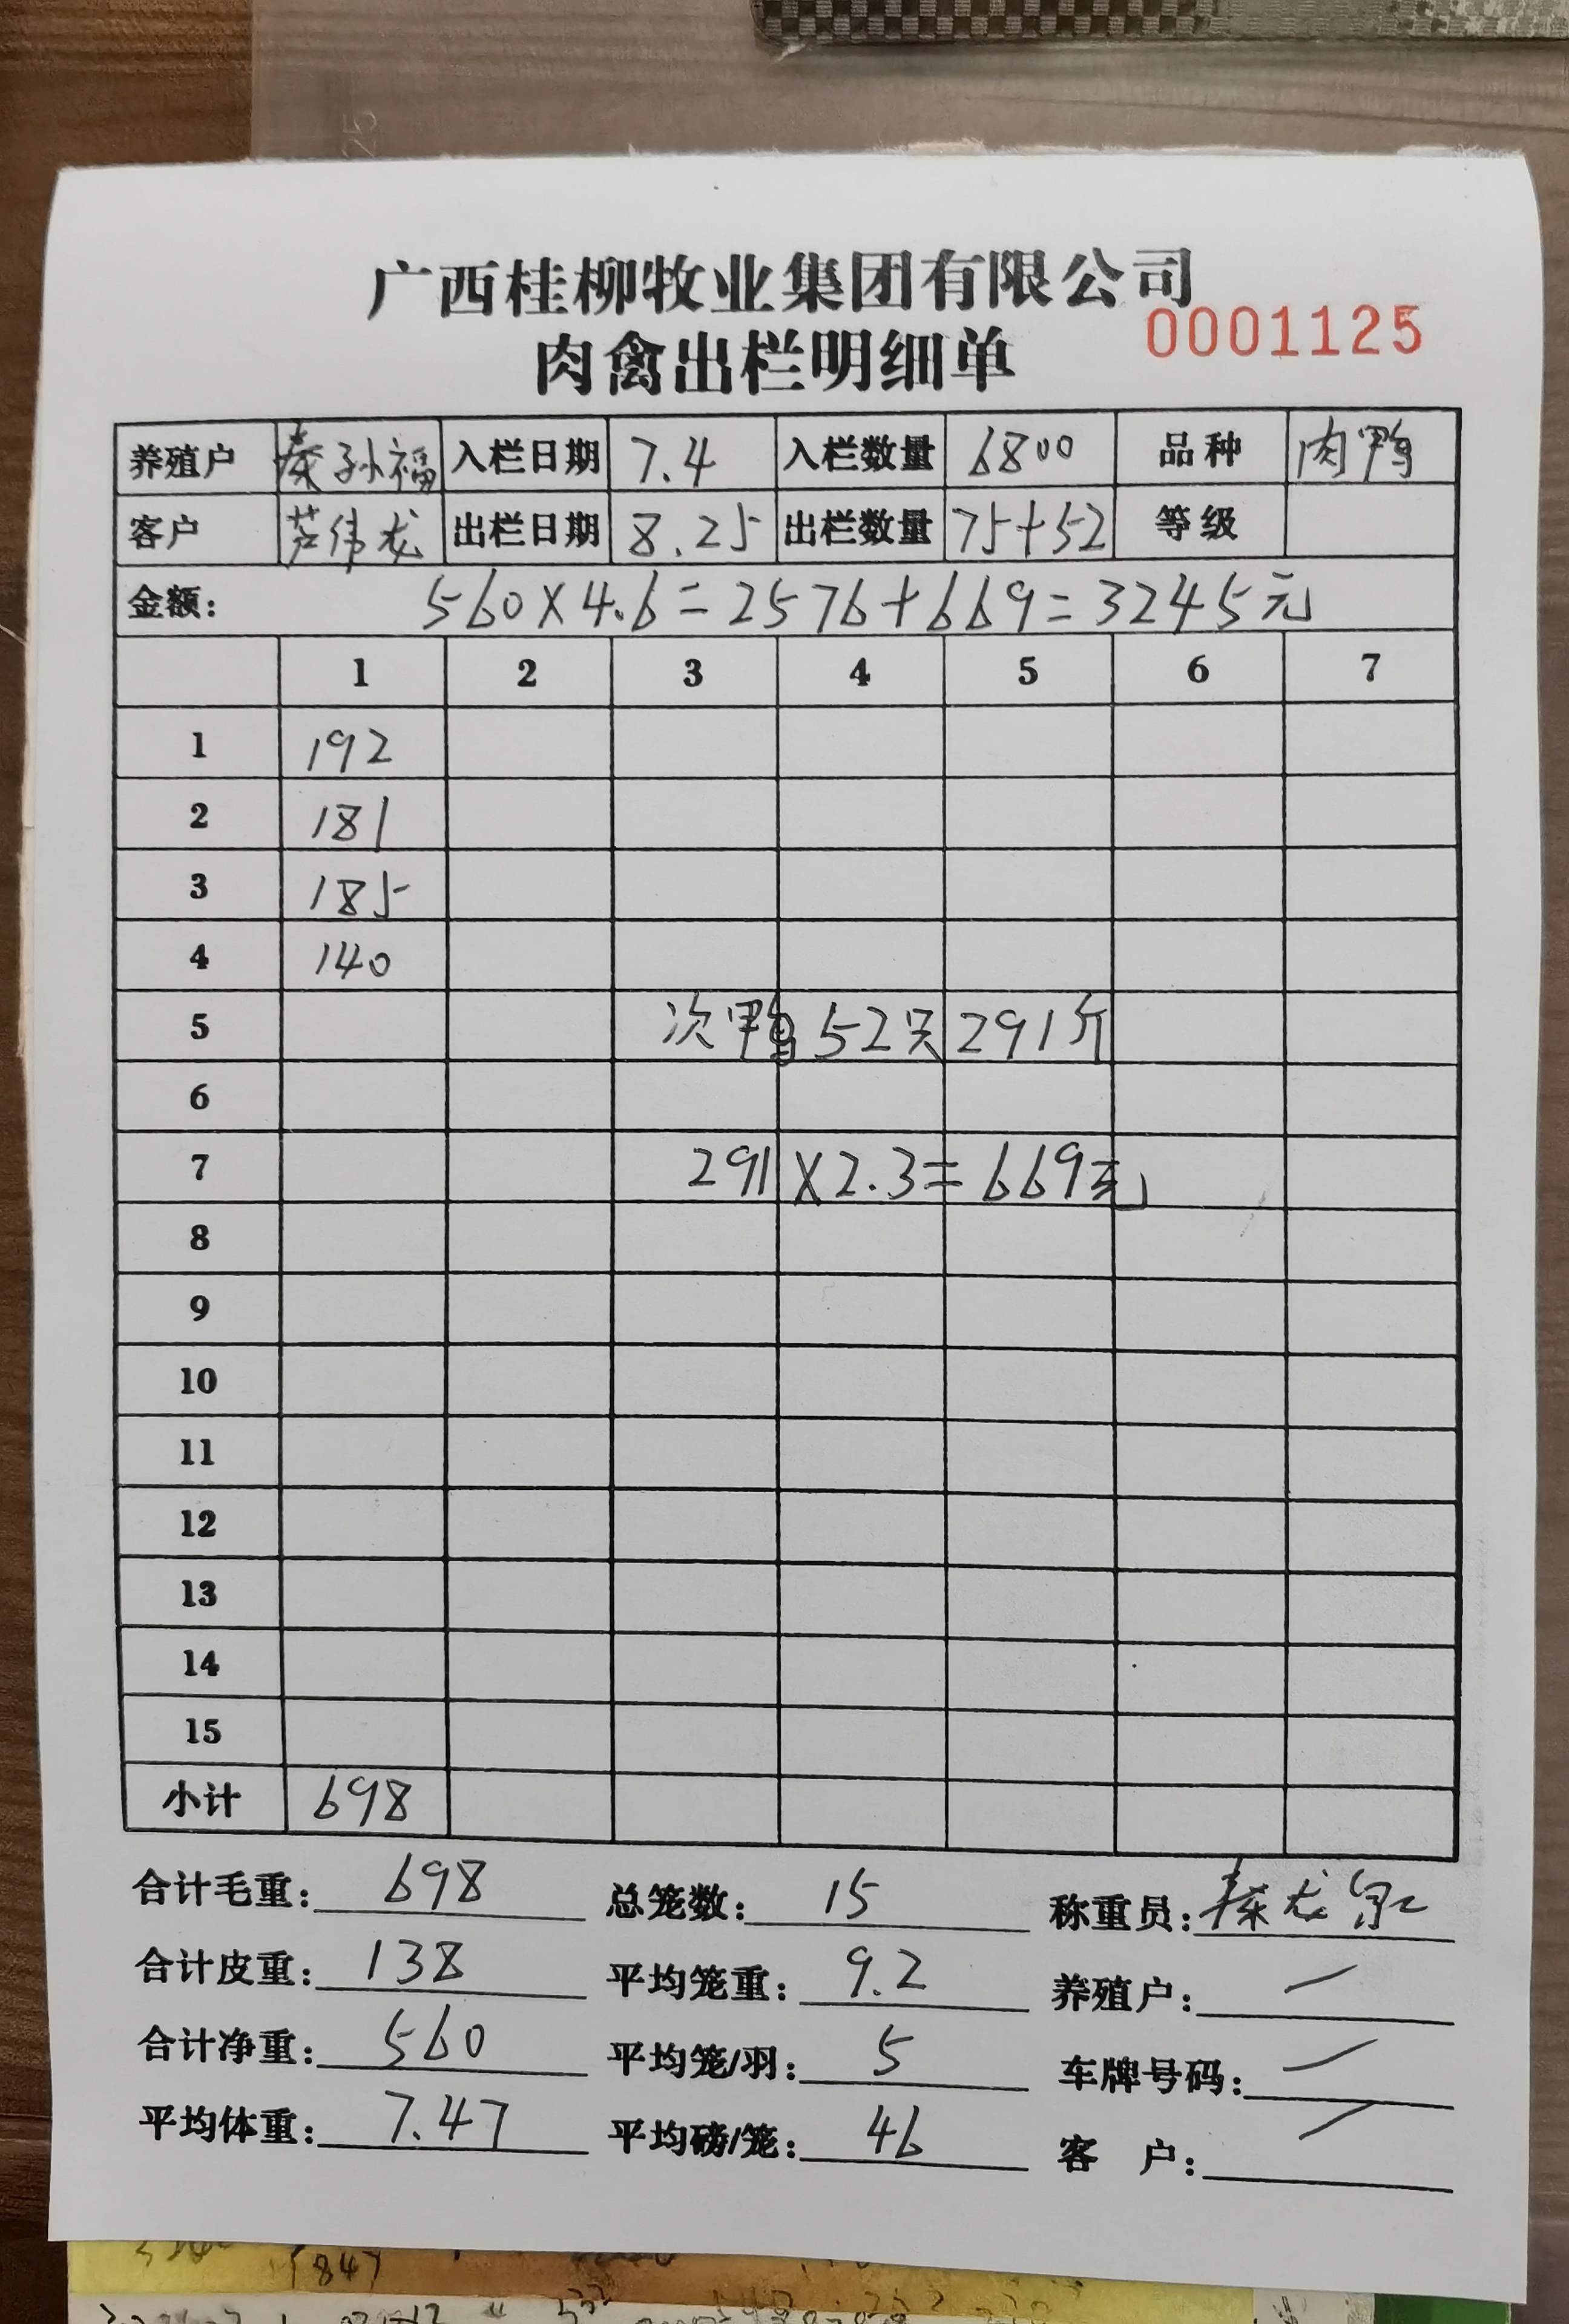 广西桂柳牧业集团有限公司
肉禽出栏明细单 0001125
养殖户 秦孙福 入栏日期 7.4 入栏数量 6800 品种 肉鸭
客户 芦伟龙 出栏日期 8.25 出栏数量 75+52 等级
金额: 560×4.6=2576+669=3245元
1 2 3 4 5 6 7
1 192
2 181
3 185
4 140
5 次鸭52只291斤
6
7 291×2.3=669元
8
9
10
11
12
13
14
15
小计 698
合计毛重: 698 总笼数: 15 称重员: 秦龙
合计皮重: 138 平均笼重: 9.2 养殖户: 一
合计净重: 560 平均笼/羽: 5 车牌号码: 一
平均体重: 7.47 平均磅/笼: 46 客 户: 一